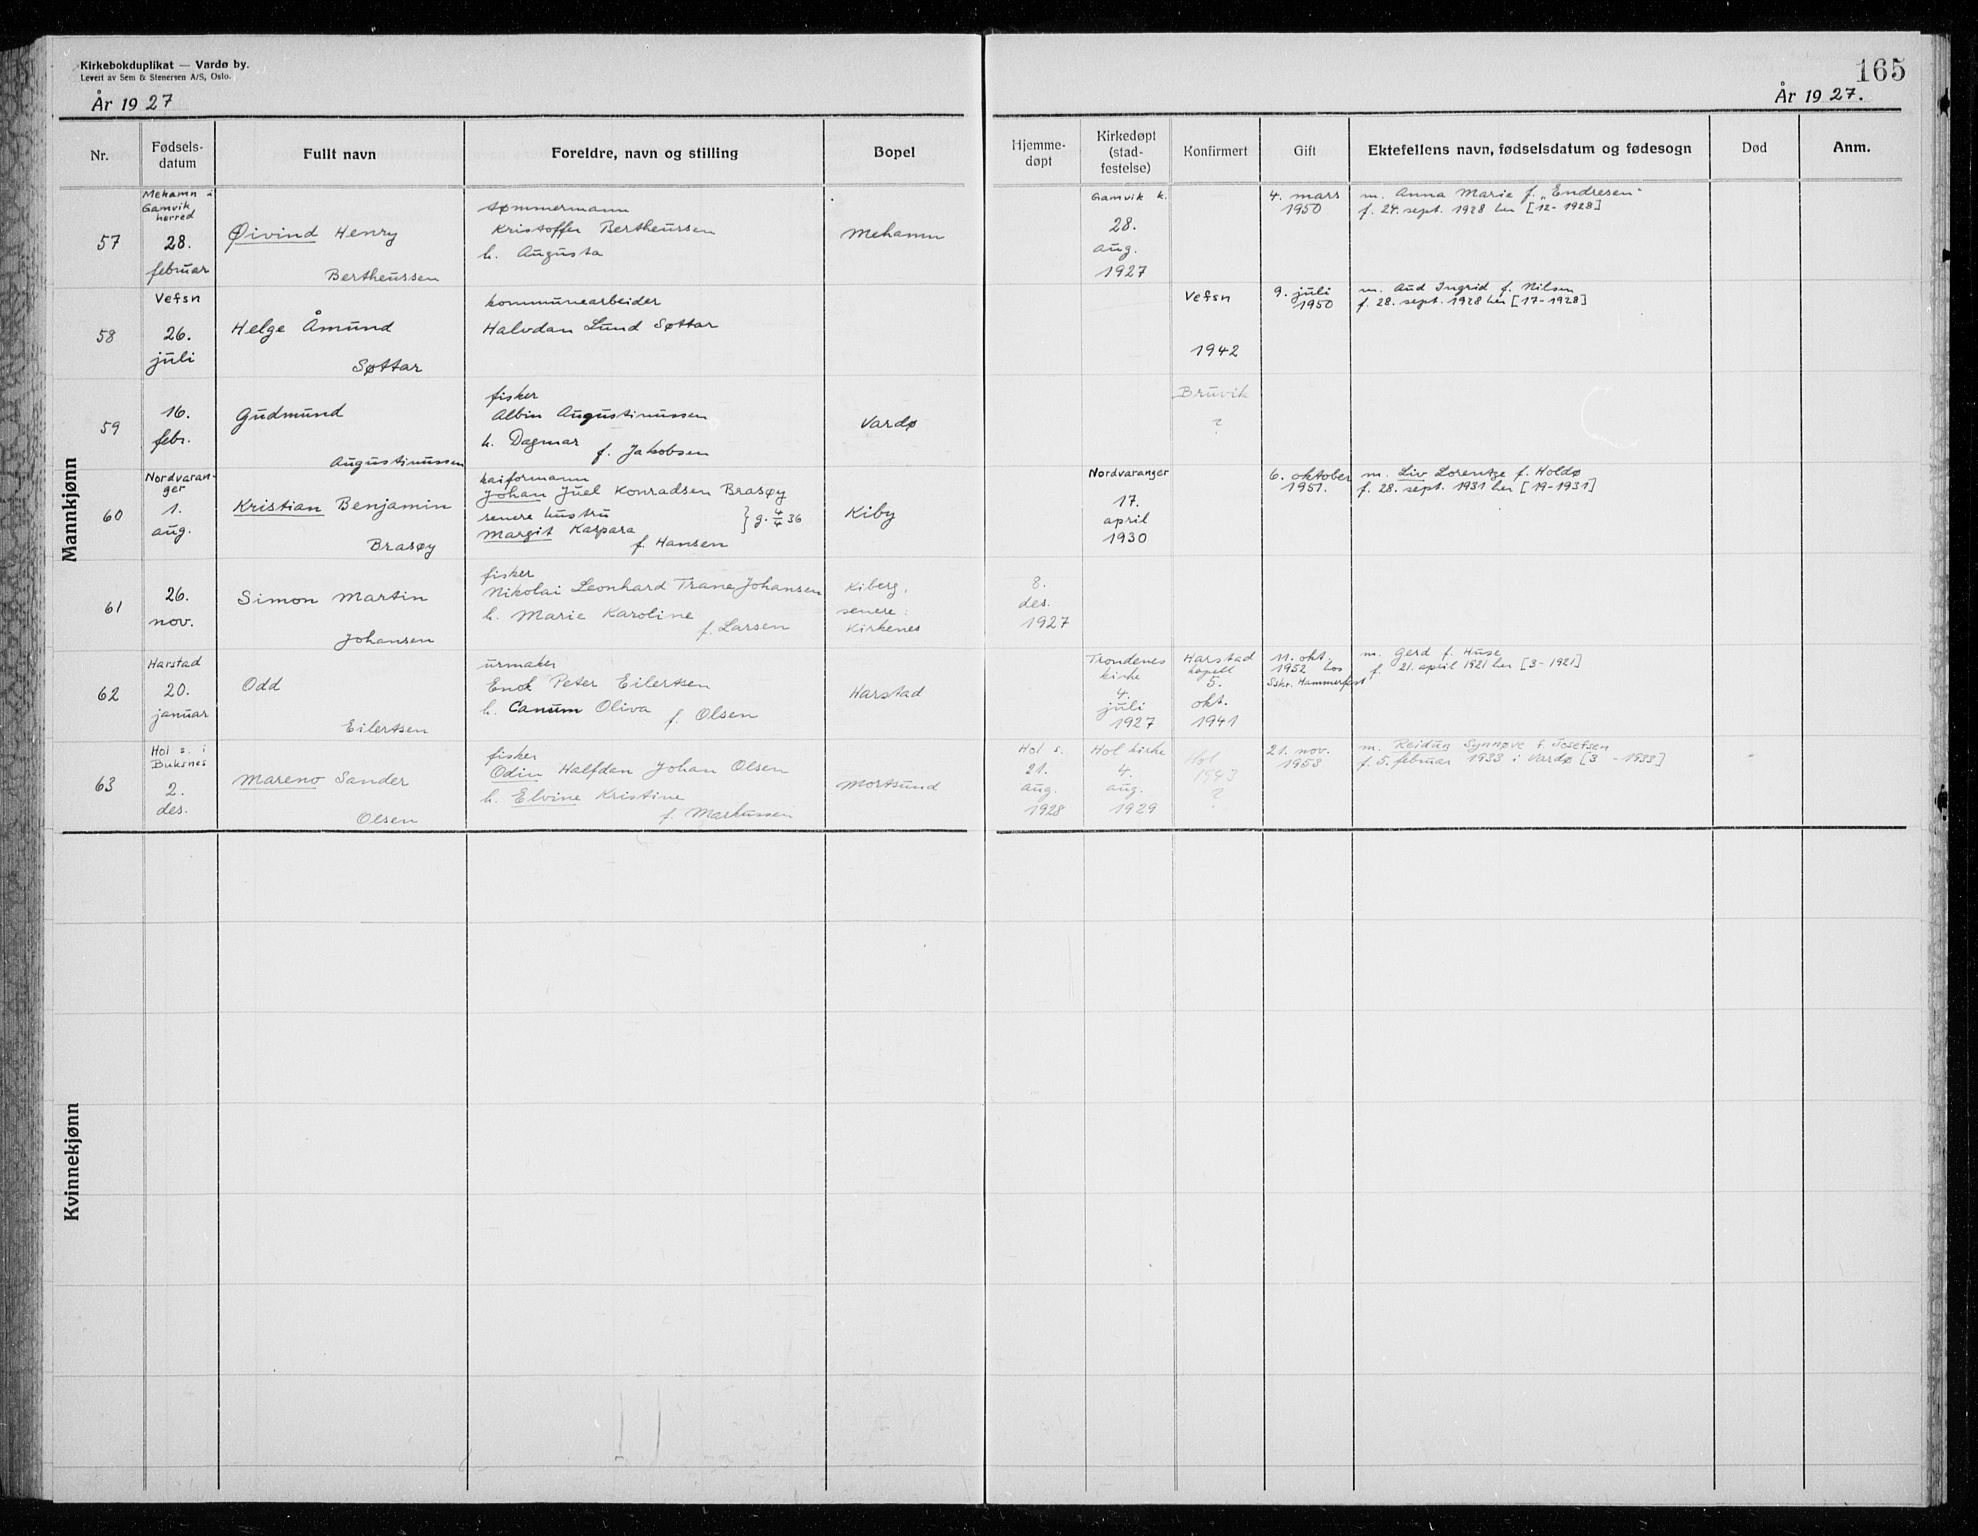 Kirkebokduplikat — Vardø by.
Levert av Sem & Stenersen A/S, Oslo.
År 1927
165
År 1927.
Nr.
Fødsels-
datum
Fullt navn
Foreldre, navn og stilling
Bopel
Hjemme-
døpt
Kirkedøpt
(stad-
festelse)
Konfirmert
Gift
Ektefellens navn, fødselsdatum og fødesogn
Død
Anm.
Mannkjønn
57
Mehamn i
Gamvik
herred
28.
februar
Øivind Henry
Bertheussen
tømmermann
Kristoffer Bertheussen
h. Augusta
Mehamn
Gamvik k.
28.
aug.
1927
4. mars
1950
m. Anna Marie f. "Endresen"
f. 24. sept. 1928 her [12-1928]
58
Vefsn
26.
juli
Helge Åmund
Søttar
kommunearbeider
Halvdan Lund Søttar
Vefsn
1942
9. juli
1950
m. Aud Ingrid f. Nilsen
f. 28. sept. 1928 her [17-1928]
59
16.
febr.
Gudmund
Augustinussen
fisker
Albin Augustinussen
h. Dagmar
f. Jakobsen
Vardø
Bruvik
?
60
Nordvaran-
ger
1.
aug.
Kristian Benjamin
Brasøy
kaiformann
Johan Juel Konradsen Brasøy
senere hustru
Margit Kaspara
f. Hansen
} g. 4/4 36
Kiby
Nordvaranger
17.
april
1930
6. oktober
1951.
m. Liv Lorentze f. Holdø
f. 28. sept. 1931 her [19-1931]
61
26.
nov.
Simon Martin
Johansen
fisker
Nikolai Leonhard Trane Johansen
h. Marie Karoline
f. Larsen
Kiberg,
senere:
Kirkenes
8.
des.
1927
62
Harstad
20.
januar
Odd
Eilertsen
urmaker
Enok Peter Eilertsen
h. Canum Oliva f. Olsen
Harstad
Trondenes
kirke
4.
juli
1927
Harstad
kapell
5.
okt.
1941
11. okt.
1952 hos
Sskr. Hammerfest
m. Gerd f. Huse
f. 21. april 1921 her [3-1921]
63
Hol s. i
Buksnes
2.
des.
Mareno Sander
Olsen
fisker
Odin Halfdan Johan Olsen
h. Elvine Kristine
f. Markussen
Mortsund
Hol s.
21.
aug.
1928
Hol kirke
4.
aug.
1929
Hol
1943
?
21. nov.
1953
m. Reidun Synnøve f. Josefsen
f. 5. februar 1933 i Vardø [3 - 1933]
Kvinnekjønn